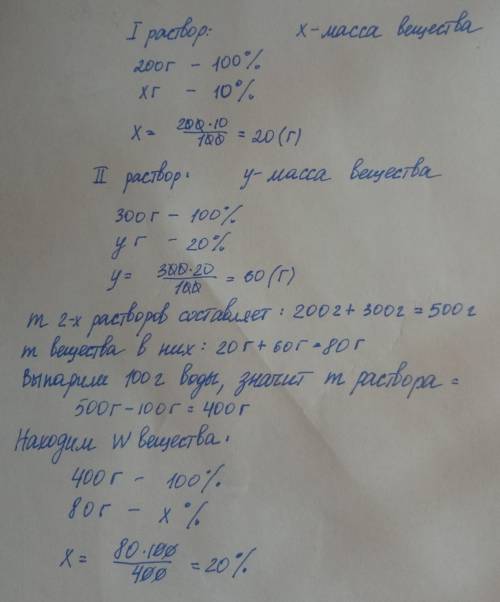 I раствор: x-масса вещества
200г - 100%
xг - 10%
x = 200·10/100 = 20(г)
II раствор: y-масса вещества
300г - 100%
yг - 20%
y = 300·20/100 = 60(г)
m 2-х растворов составляет: 200г+300г=500г
m вещества в них: 20г+60г=80г
Выпарили 100г воды, значит m раствора =
500г-100г=400г
Находим W вещества:
400г - 100%
80г - x%
x = 80·100/400 = 20%